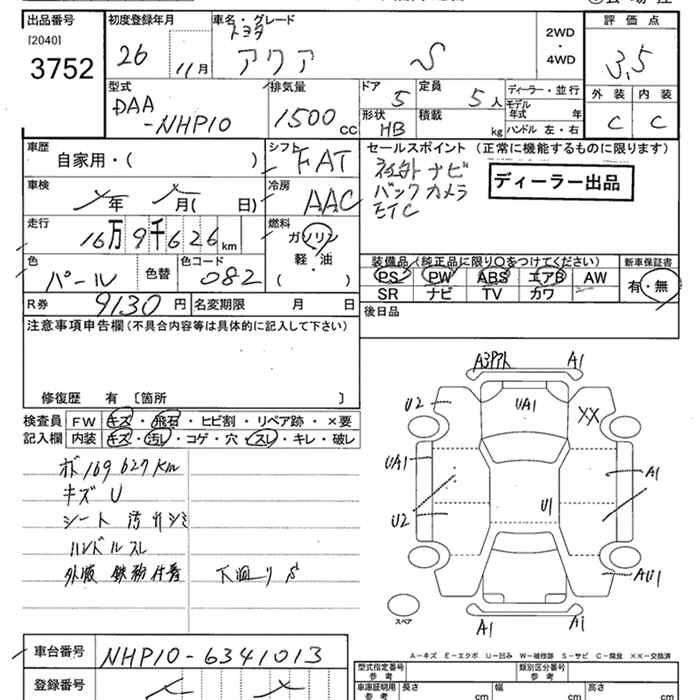 出品番号
[2040]
3752
初度登録年月
26
11月
車名・グレード
トヨタ
アクア S
2WD
・
4WD
評価点
3.5
外装 内装
C C
型式
DAA
-NHP10
排気量
1500 cc
ドア 5
定員 5人
形状 HB
積載 kg
ディーラー・並行
モデル年式 年
ハンドル 左・右
車歴
自家用・( )
シフト
FAT
車検
年 月( 日)
冷房
AAC
走行
16万9千626km
燃料
ガソリン
軽・油
( )
色
パール
色替
色コード
082
R券 9130円
名変期限 月 日
セールスポイント (正常に機能するものに限ります)
社外ナビ
バックカメラ
ETC
ディーラー出品
装備品(純正品に限り○をつけてください)
PS PW ABS エアB AW
SR ナビ TV カワ
新車保証書
有・無
後日品
注意事項申告欄(不具合内容等は具体的に記入して下さい)
修復歴 有 〔箇所 〕
検査員
記入欄
FW キズ・飛石・ヒビ割・リペア跡・×要
内装 キズ・汚レ・コゲ・穴・スレ・キレ・破レ
ボ 169627km
キズ U
シート 汚れ シミ
ハンドル スレ
下回り S
A3 A1
U2
UA1
XX
UA1
A1
U2
U1
AU1
スペア
A1
A1
A−キズ E−エクボ U−凹み W−補修跡 S−サビ C−腐食 XX−交換済
車台番号
NHP10-6341013
登録番号
型式指定番号
類別区分番号
車庫証明用
長さ cm
幅 cm
高さ cm